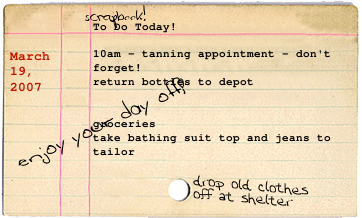 scrapbook!
To Do Today!
March
19,
2007
10am - tanning appointment - don't
forget!
return bottles to depot
enjoy your day off!
groceries
take bathing suit top and jeans to
tailor
drop old clothes
off at shelter